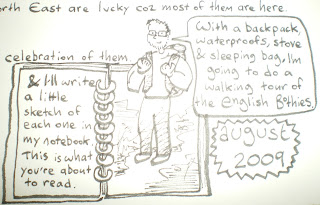 orth East are lucky coz most of them are here
With a backpack,
waterproofs, stove
& sleeping bag, I'm
going to do a
walking tour of
the English Bothies.
celebration of them
& I'll write
a little
sketch of
each one in
my notebook.
This is what
you're about
to read.
august
2009